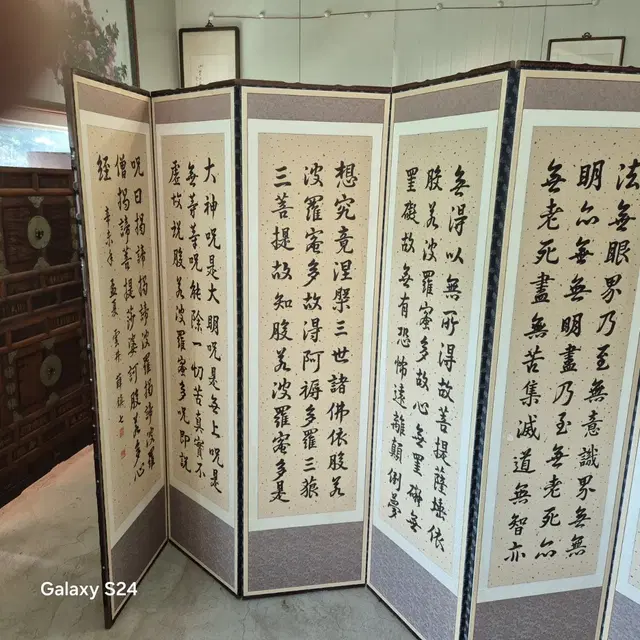 法無眼界乃至無意識界無無
明亦無無明盡乃至無老死亦
無老死盡無苦集滅道無智亦
無得以無所得故菩提薩埵依
般若波羅蜜多故心無罣礙無
罣礙故無有恐怖遠離顛倒夢
想究竟涅槃三世諸佛依般若
波羅蜜多故得阿耨多羅三藐
三菩提故知般若波羅蜜多是
大神呪是大明呪是無上呪是
無等等呪能除一切苦真實不
虛故說般若波羅蜜多呪即說
呪曰揭諦揭諦波羅揭諦波羅
僧揭諦菩提莎婆訶般若多心
經 辛未年孟夏 雲井
Galaxy S24